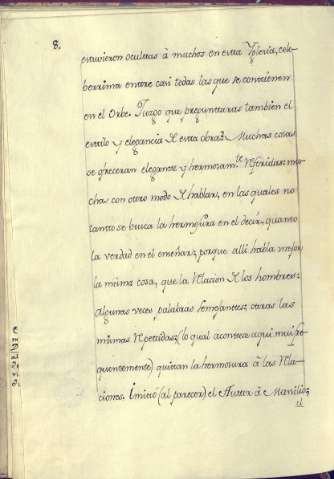 8.
estuvieron ocultas à muchos en esta Yglesia, cele-
berrima entre casi todas las que se contienen
en el Orbe. Juzgo que preguntaras tambien el
estilo y elegancia de esta obra? Muchas cosas
se ofreceran elegante y hermosam.te referidas; mu-
chas con otro modo de hablar, en las quales no
tantto se busca la hermosura en el decir, quanto
la verdad en el enseñar; porque alli habla mejor
la misma cosa, que la relacion de los hombres;
algunas veces palabras semejantes; otras las
mismas repetidas; (lo qual acontece aqui mui fre-
quentemente) quitan la hermosura à las rela-
ciones. Imitó (al parecer) el Author à Manilio;
el